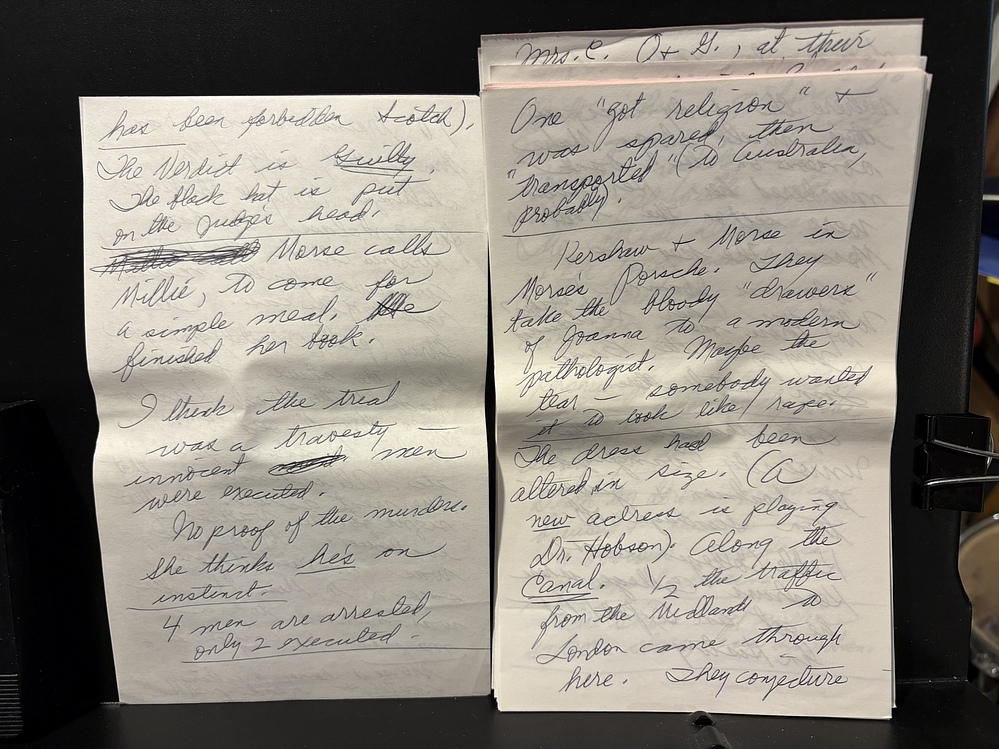 has been forbidden Scotch).
The Verdict is Guilty.
The black hat is put
on the Judges head.
Morse calls
Millie, to come for
a simple meal. He
finished her book.
I think the trial
was a travesty —
innocent men
were executed.
No proof of the murders.
She thinks he's on
instinct.
4 men are arrested,
only 2 executed.
Mrs. C. O + G., at their
One "got religion" +
was spared, then
"Transported" (To Australia,
probably).
Kershaw + Morse in
Morse's Porsche. They
take the bloody "drawers"
of Joanna to a modern
pathologist. Maybe the
tear — somebody wanted
it to look like rape.
The dress had been
altered in size. (A
new actress is playing
Dr. Hobson). Along the
Canal. 1/2 the traffic
from the Midlands to
London came through
here. They conjecture